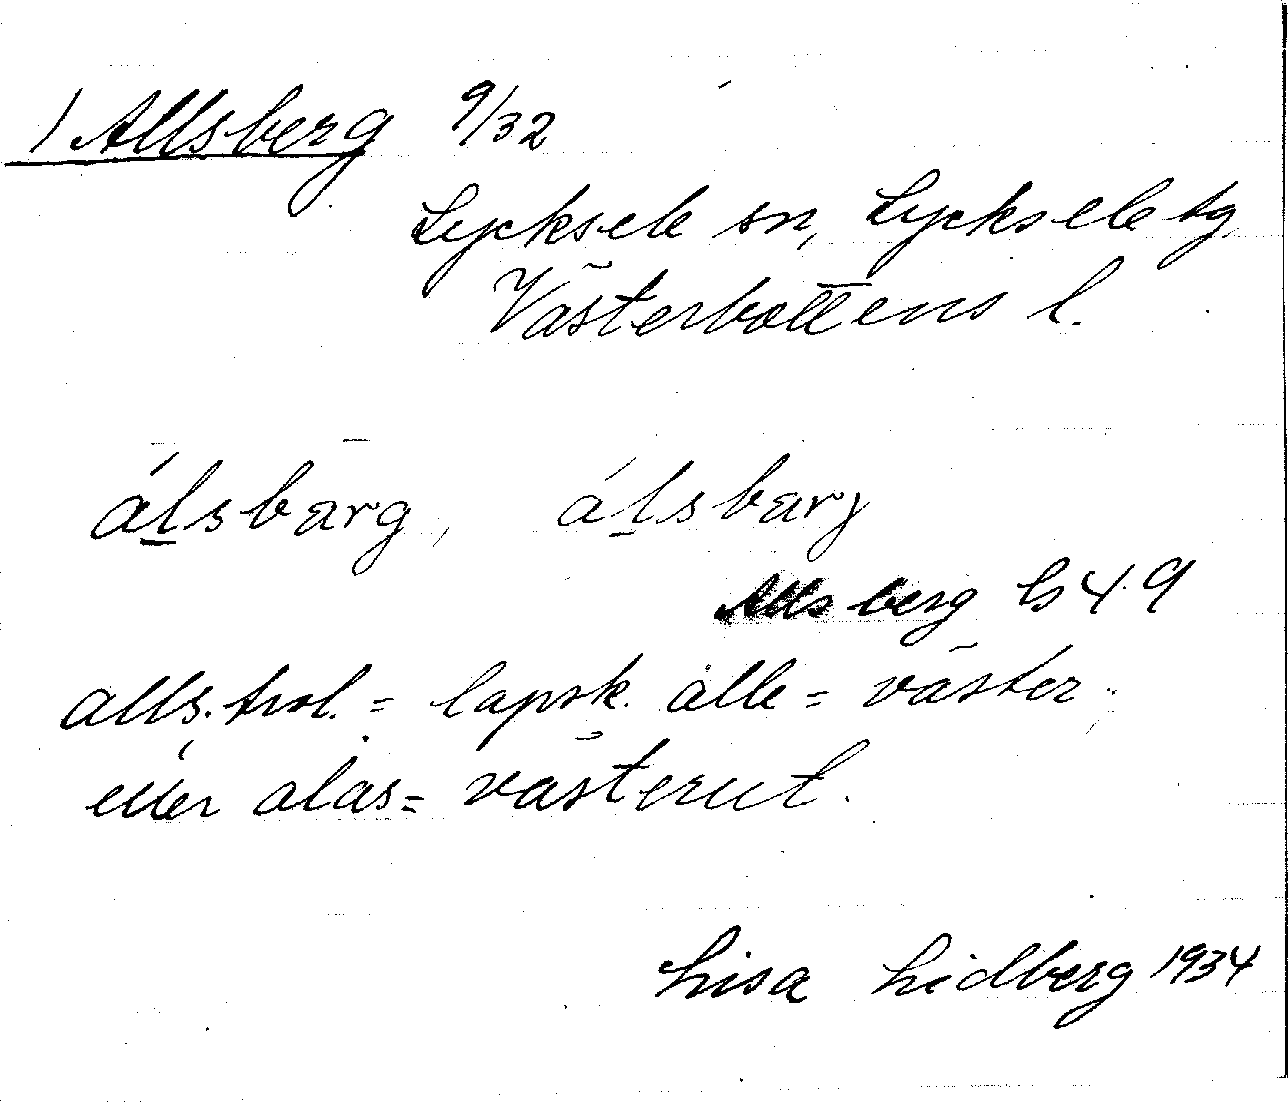 1 Allsberg 9/32
Lycksele sn, Lycksele tg
Västerbottens l.
álsbärg, álsbärj
Allsberg Gs 49
alls. trol. = lapsk. alle = väster,
eller alas = västerut.
Lisa Lidberg 1934